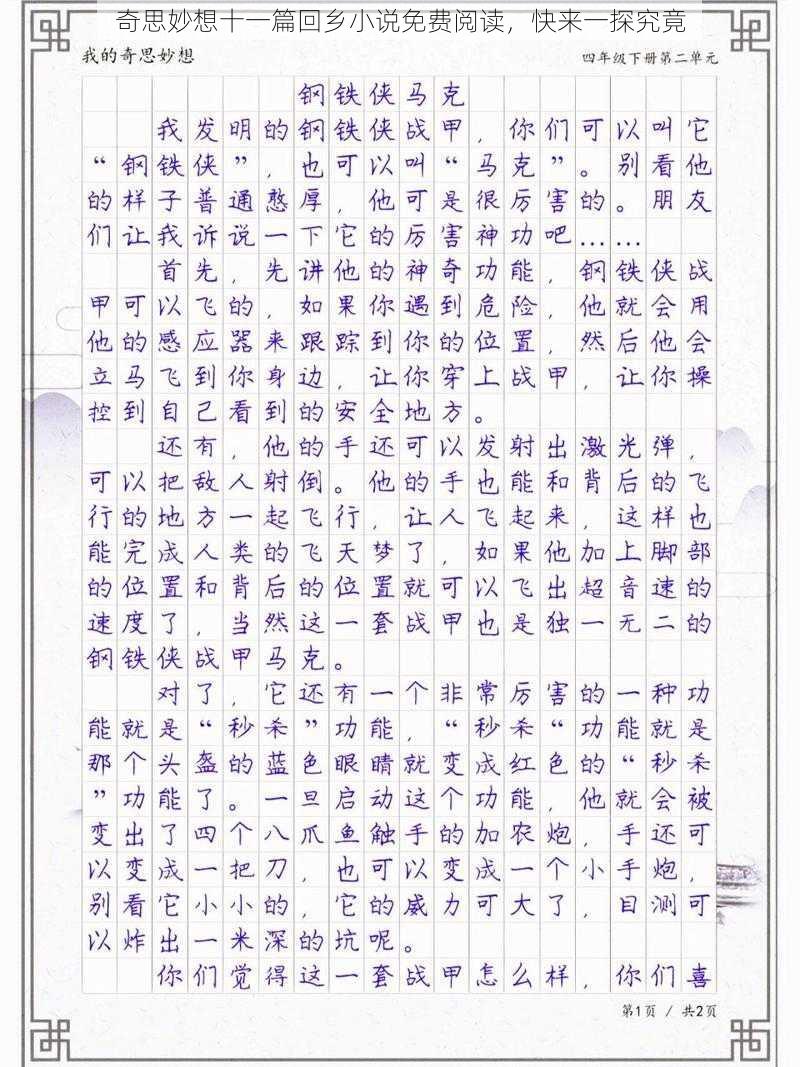 奇思妙想十一篇回乡小说免费阅读，快来一探究竟
我的奇思妙想
四年级下册第二单元
钢铁侠马克
我发明的钢铁侠战甲，你们可以叫它
“钢铁侠”，也可以叫“马克”。别看他
的样子普通憨厚，他可是很厉害的。朋友
们让我诉说一下它的厉害神功吧……
首先，先讲他的神奇功能，钢铁侠战
甲可以飞的，如果你遇到危险，他就会用
他的感应器来跟踪到你的位置，然后他会
立马飞到你身边，让你穿上战甲，让你操
控到自己看到的安全地方。
还有，他的手还可以发射出激光弹，
可以把敌人射倒。他的手也能和背后的飞
行的地方一起飞行，让人飞起来，这样也
能完成人类的飞天梦了，如果他加上脚部
的位置和背后的位置就可以飞出超音速的
速度了，当然这一套战甲也是独一无二的
钢铁侠战甲马克。
对了，它还有一个非常厉害的一种功
能就是“秒杀”功能，“秒杀“功能就是
那个头盔的蓝色眼睛就变成红色的“秒杀
”功能了。一旦启动这个功能，他就会被
变出了四个八爪鱼触手的加农炮，手还可
以变成一把刀，也可以变成一个小手炮，
别看它小小的，它的威力可大了，目测可
以炸出一米深的坑呢。
你们觉得这一套战甲怎么样，你们喜
第1页 / 共2页